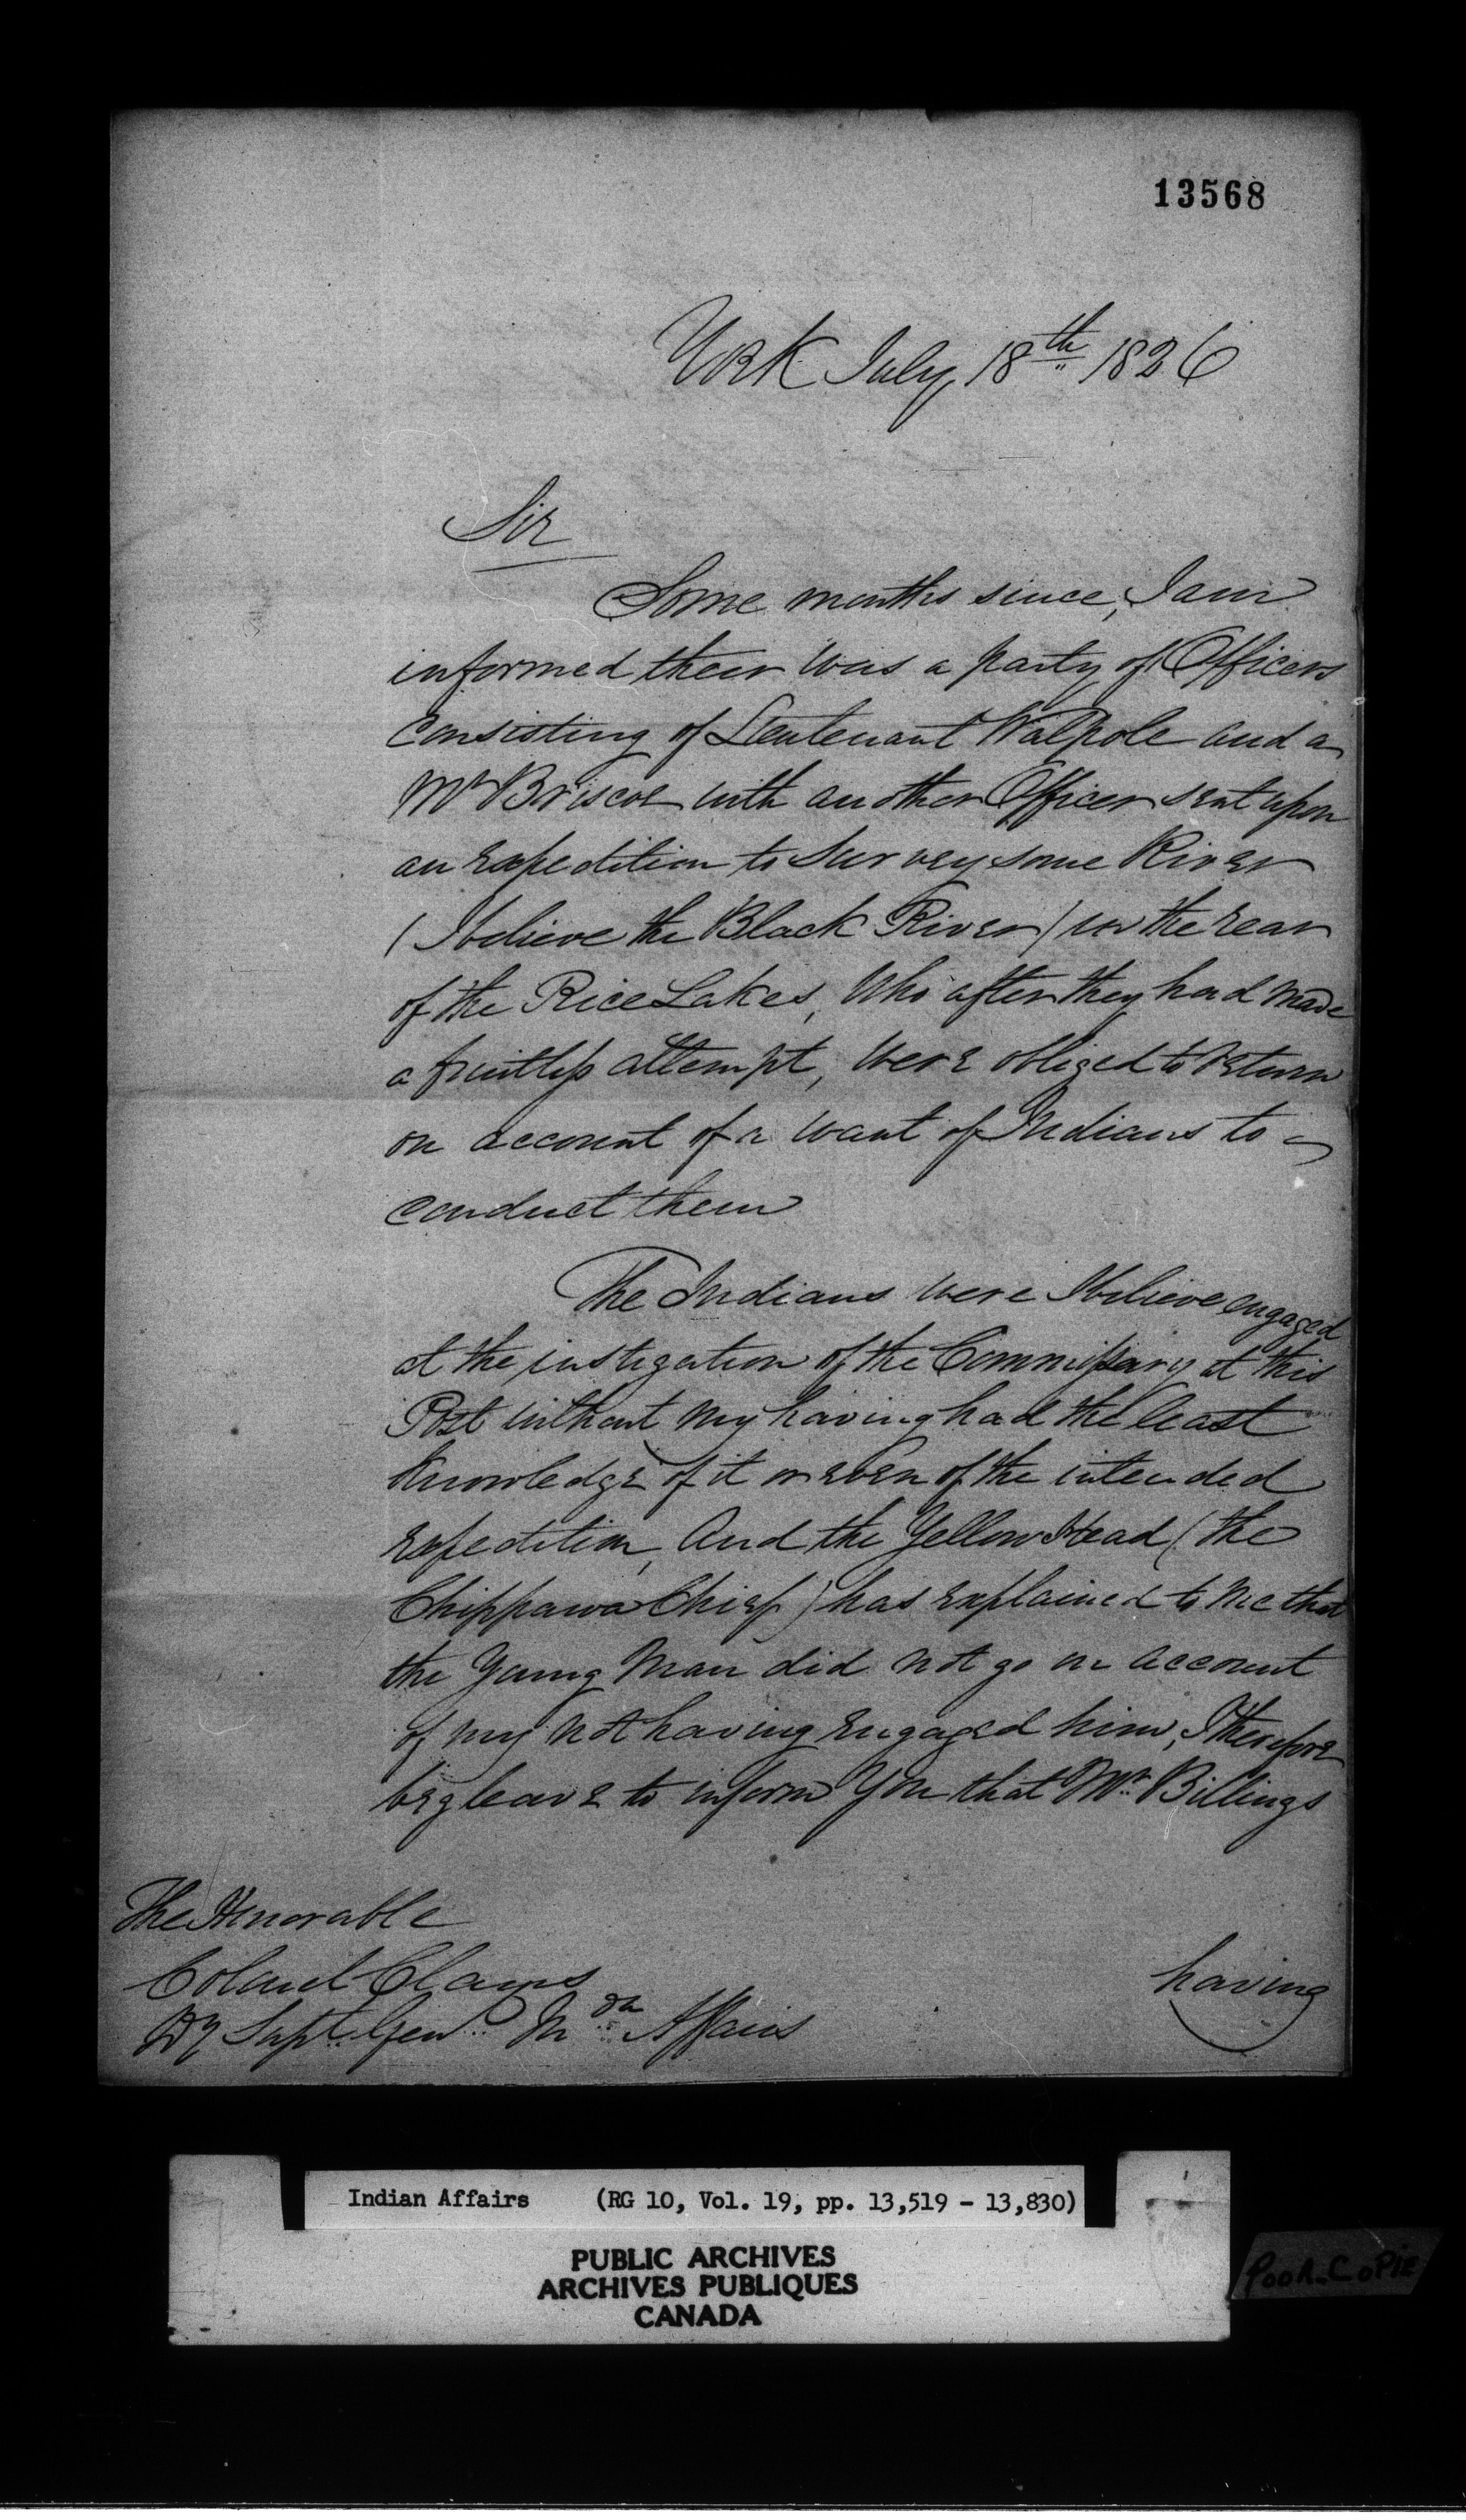 13568
York July 18th 1826
Sir
Some months since, I am
informed their was a party of Officers
consisting of Lieutenant Walpole and a
Mr Briscoe with another Officer sent upon
an expedition to survey some River
(I believe the Black River) in the rear
of the Rice Lakes, Who after they had made
a fruitless attempt, were obliged to return
on account of a want of Indians to
conduct them
The Indians were I believe engaged
at the instigation of the Commissary at this
Post without my having had the least
knowledge of it or even of the intended
expedition, And the Yellow Head (the
Chippawa Chief) has explained to me that
the Young Man did not go on account
of my not having engaged him, I therefore
beg leave to inform You that Mr. Billings
The Honorable
Colonel Claus
Dy Supt. Genl. In dn Affairs
having
Indian Affairs (RG 10, Vol. 19, pp. 13,519 - 13,830)
PUBLIC ARCHIVES
ARCHIVES PUBLIQUES
CANADA
POOR COPIE